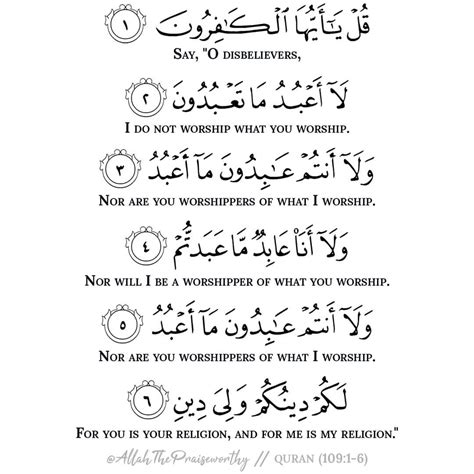 قُلْ يَٰٓأَيُّهَا ٱلْكَٰفِرُونَ ١
SAY, "O DISBELIEVERS,
لَآ أَعْبُدُ مَا تَعْبُدُونَ ٢
I DO NOT WORSHIP WHAT YOU WORSHIP.
وَلَآ أَنتُمْ عَٰبِدُونَ مَآ أَعْبُدُ ٣
NOR ARE YOU WORSHIPPERS OF WHAT I WORSHIP.
وَلَآ أَنَا۠ عَابِدٌ مَّا عَبَدتُّمْ ٤
NOR WILL I BE A WORSHIPPER OF WHAT YOU WORSHIP.
وَلَآ أَنتُمْ عَٰبِدُونَ مَآ أَعْبُدُ ٥
NOR ARE YOU WORSHIPPERS OF WHAT I WORSHIP.
لَكُمْ دِينُكُمْ وَلِىَ دِينِ ٦
FOR YOU IS YOUR RELIGION, AND FOR ME IS MY RELIGION."
@AllahThePraiseworthy // QURAN (109:1-6)